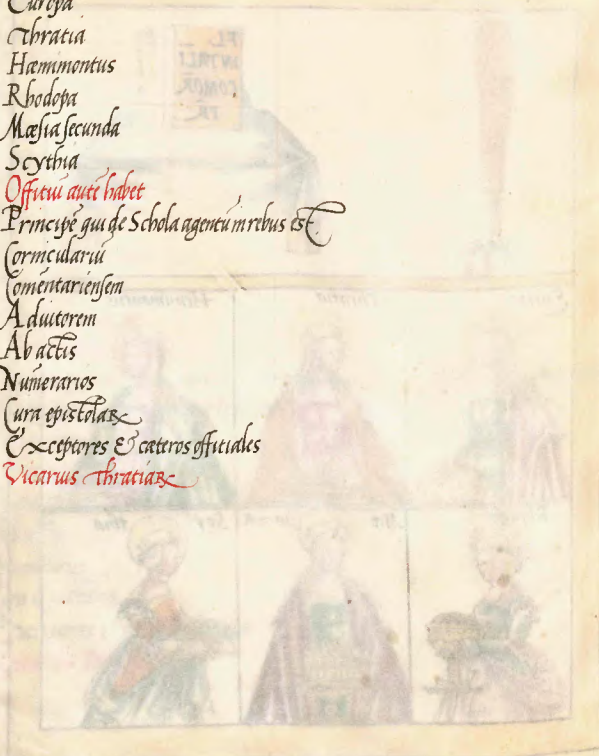 Europa
Thratia
Hæmimontus
Rhodopa
Mæsia secunda
Scythia
Offitiũ autẽ habet
Principẽ qui de Schola agentũ in rebus est.
Corniculariũ
Comentariensem
Adiutorem
Ab actis
Numerarios
Cura epistolaꝝ
Exceptores & cæteros offitiales
Vicarius Thratiaꝝ